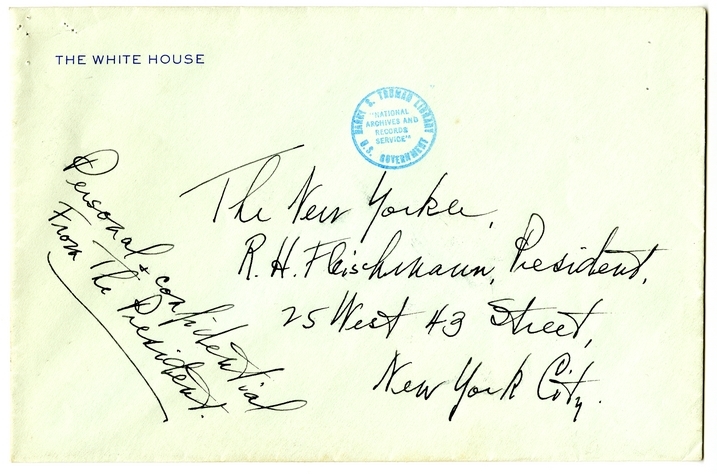 THE WHITE HOUSE
HARRY S. TRUMAN LIBRARY
"NATIONAL
ARCHIVES AND
RECORDS
SERVICE"
U.S. GOVERNMENT
Personal & confidential
From The President.
The New Yorker,
R. H. Fleischmann, President,
25 West 43 Street,
New York City.